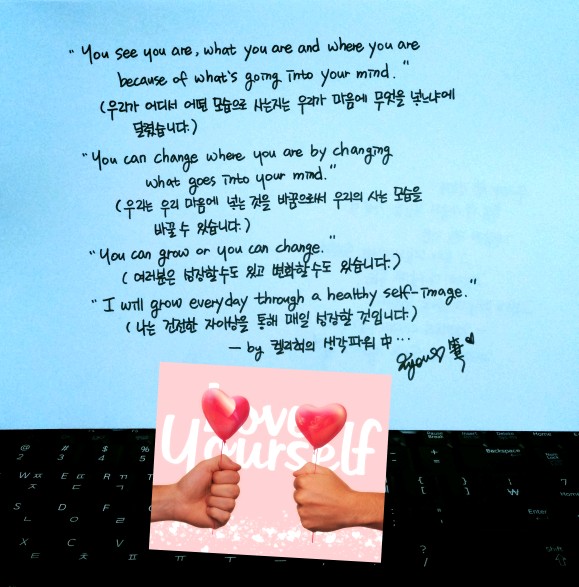 "You see you are, what you are and where you are
because of what's going into your mind."
(우리가 어디서 어떤 모습으로 사는지는 우리가 마음에 무엇을 넣느냐에
달렸습니다.)
"You can change where you are by changing
what goes into your mind."
(우리는 우리 마음에 넣는 것을 바꿈으로써 우리의 사는 모습을
바꿀 수 있습니다.)
"You can grow or you can change."
(여러분은 성장할수도 있고 변화할수도 있습니다.)
"I will grow everyday through a healthy self-image."
(나는 건전한 자아상을 통해 매일 성장할 것입니다.)
- by 켈리최의 생각파워 中...
Love
Yourself
Pause Break Insert Delete Home
@ # $ % + Backspace Num Lock
2 3 4 5 =
W ㅉ E ㄸ R ㄲ T { } | 7
ㅈ ㄷ ㄱ [ ] ₩ Home
S D F Enter 4
ㄴ ㅇ ㄹ
X C V ? Shift
ㅌ ㅊ ㅍ ㅠ ㅜ ㅡ /